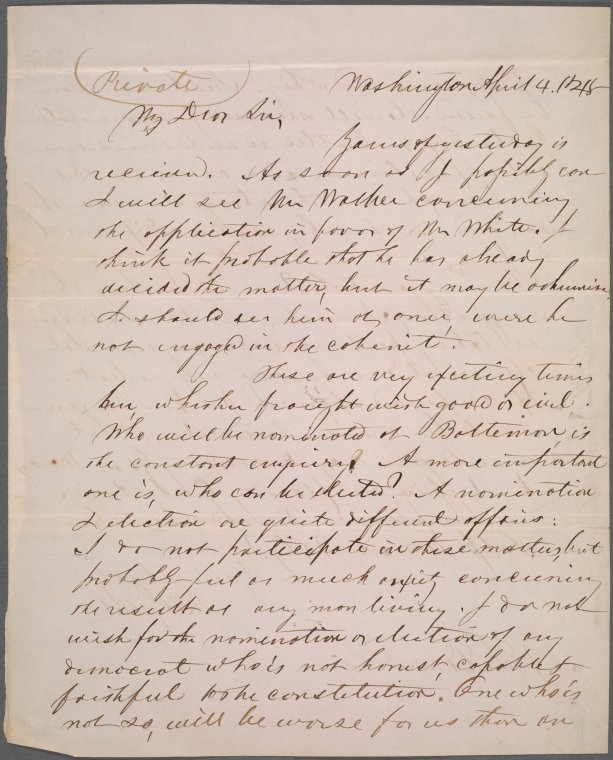 Private
Washington April 4. 1848
My Dear Sir,
Yours of yesterday is
received. As soon as I possibly can
I will see Mr Walker concerning
the application in favor of Mr White. I
think it probable that he has already
decided the matter, but it may be otherwise
I should see him at once, were he
not engaged in the cabinet.
These are very exciting times
here, whether fraught with good or evil.
Who will be nominated at Baltimore, is
the constant enquiry? A more important
one is, who can be elected? A nomination
& election are quite different affairs.
I do not participate in these matters, but
probably feel as much anxiety concerning
the result as any man living. I do not
wish for the nomination or election of any
democrat who is not honest, capable &
faithful to the constitution. One who is
not so, will be worse for us than an